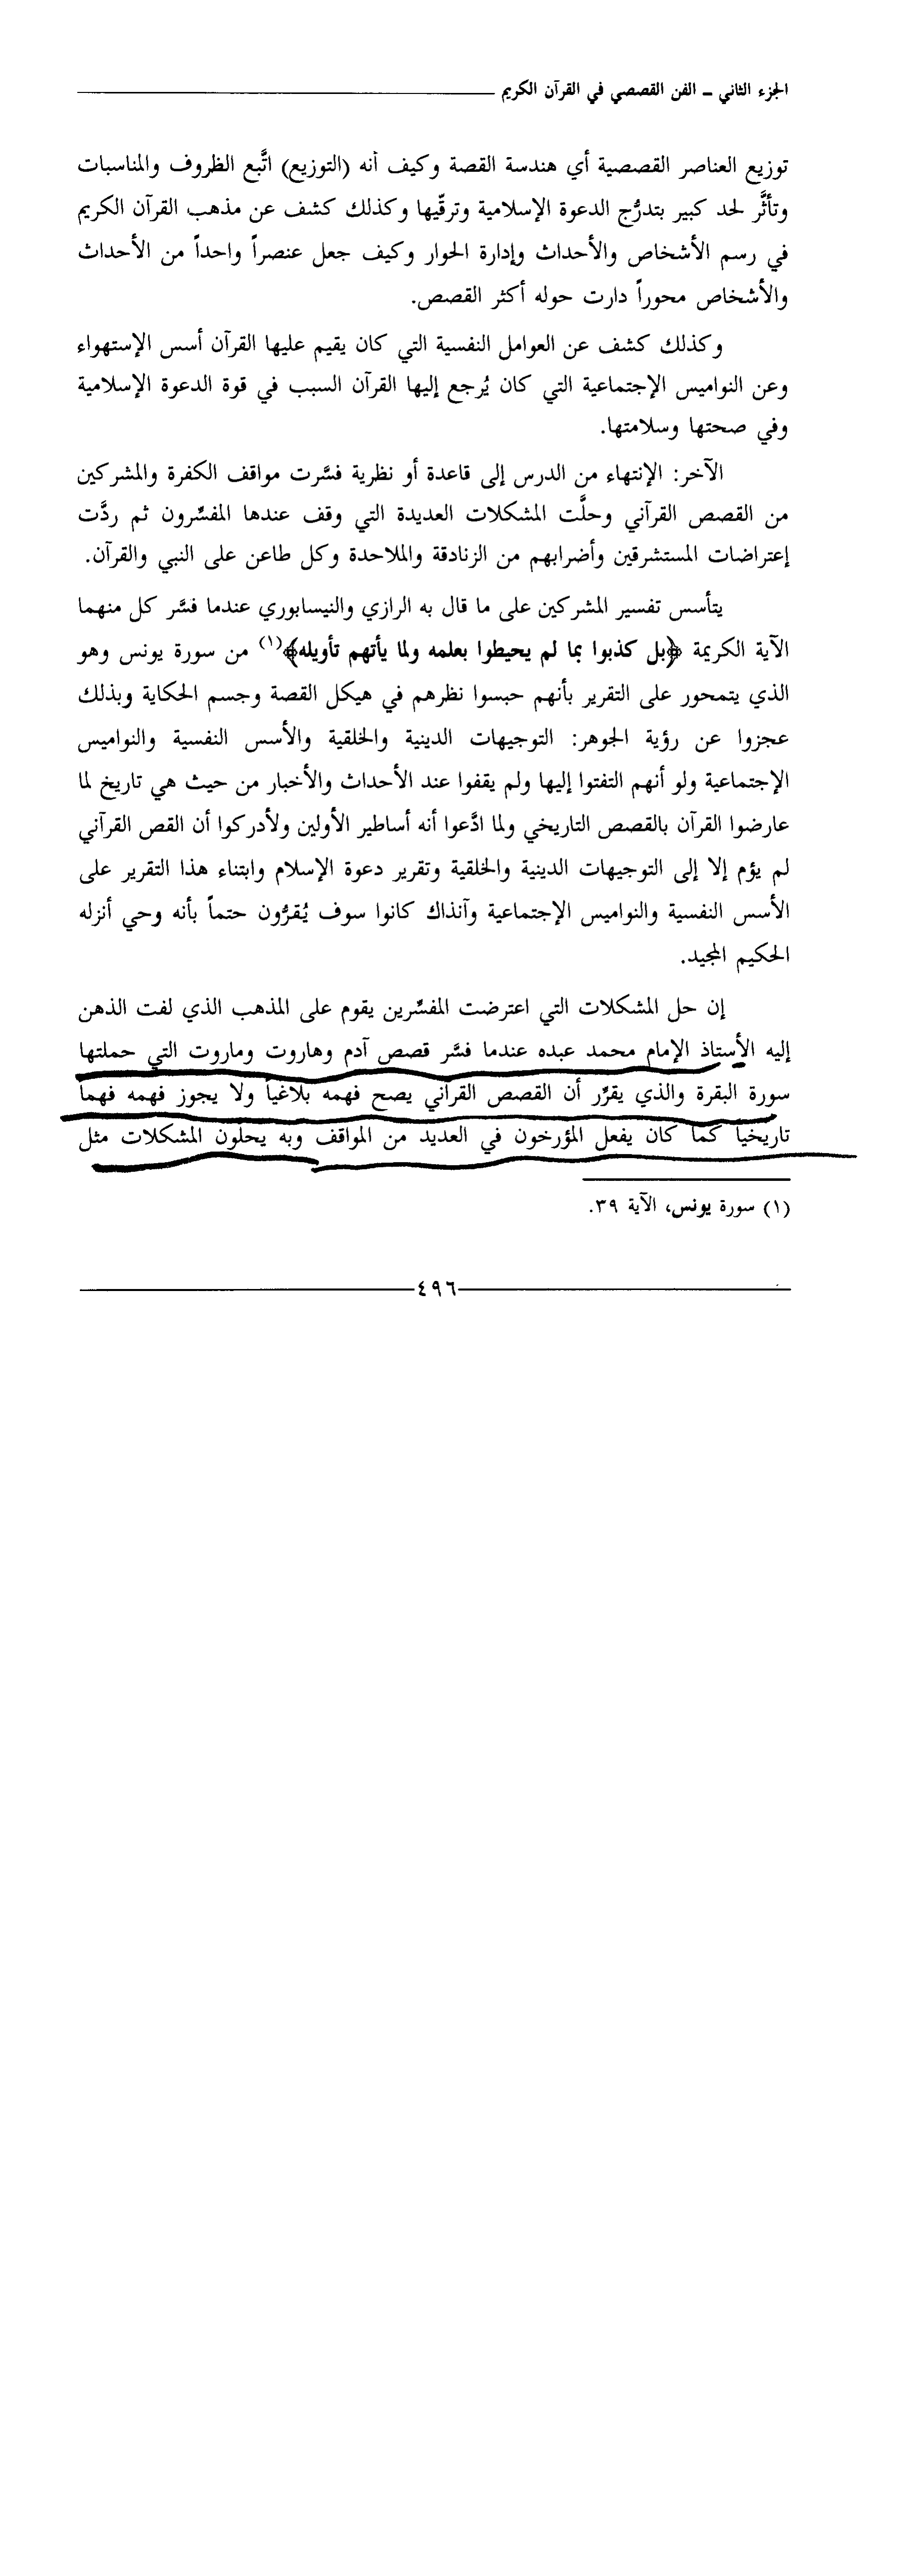 الجزء الثاني ــ الفن القصصي في القرآن الكريم
توزيع العناصر القصصية أي هندسة القصة وكيف أنه (التوزيع) اتَّبع الظروف والمناسبات
وتأثَّر لحد كبير بتدرُّج الدعوة الإسلامية وترقّيها وكذلك كشف عن مذهب القرآن الكريم
في رسم الأشخاص والأحداث وإدارة الحوار وكيف جعل عنصراً واحداً من الأحداث
والأشخاص محوراً دارت حوله أكثر القصص.
وكذلك كشف عن العوامل النفسية التي كان يقيم عليها القرآن أسس الإستهواء
وعن النواميس الإجتماعية التي كان يُرجع إليها القرآن السبب في قوة الدعوة الإسلامية
وفي صحتها وسلامتها.
الآخر: الإنتهاء من الدرس إلى قاعدة أو نظرية فسَّرت مواقف الكفرة والمشركين
من القصص القرآني وحلَّت المشكلات العديدة التي وقف عندها المفسِّرون ثم ردَّت
إعتراضات المستشرقين وأضرابهم من الزنادقة والملاحدة وكل طاعن على النبي والقرآن.
يتأسس تفسير المشركين على ما قال به الرازي والنيسابوري عندما فسَّر كل منهما
الآية الكريمة ﴿بل كذبوا بما لم يحيطوا بعلمه ولما يأتهم تأويله﴾(١) من سورة يونس وهو
الذي يتمحور على التقرير بأنهم حبسوا نظرهم في هيكل القصة وجسم الحكاية وبذلك
عجزوا عن رؤية الجوهر: التوجيهات الدينية والخلقية والأسس النفسية والنواميس
الإجتماعية ولو أنهم التفتوا إليها ولم يقفوا عند الأحداث والأخبار من حيث هي تاريخ لما
عارضوا القرآن بالقصص التاريخي ولما ادَّعوا أنه أساطير الأولين ولأدركوا أن القص القرآني
لم يؤم إلا إلى التوجيهات الدينية والخلقية وتقرير دعوة الإسلام وابتناء هذا التقرير على
الأسس النفسية والنواميس الإجتماعية وآنذاك كانوا سوف يُقرُّون حتماً بأنه وحي أنزله
الحكيم المجيد.
إن حل المشكلات التي اعترضت المفسِّرين يقوم على المذهب الذي لفت الذهن
إليه الأستاذ الإمام محمد عبده عندما فسَّر قصص آدم وهاروت وماروت التي حملتها
سورة البقرة والذي يقرِّر أن القصص القرآني يصح فهمه بلاغياً ولا يجوز فهمه فهماً
تاريخياً كما كان يفعل المؤرخون في العديد من المواقف وبه يحلون المشكلات مثل
(١) سورة يونس، الآية ٣٩.
٤٩٦